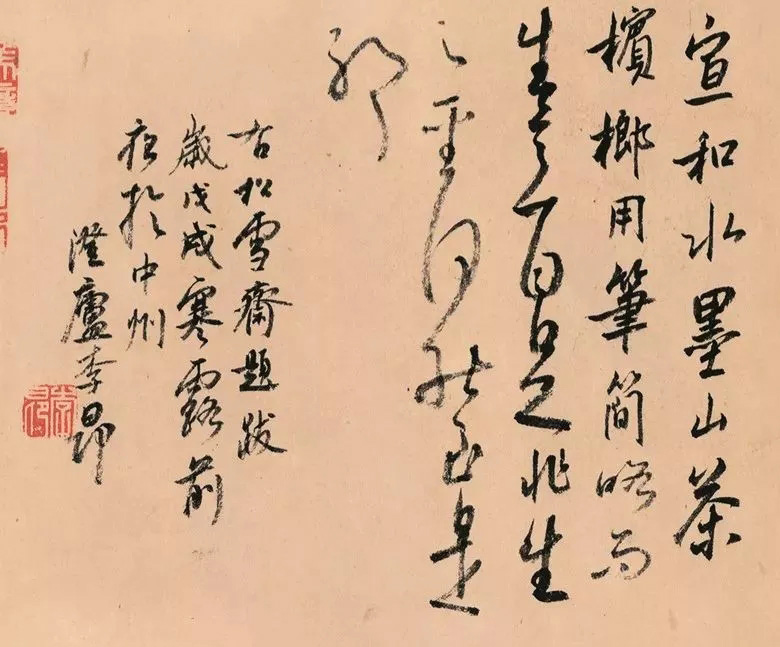 宣和水墨山茶
檳榔用筆簡略而
生意自足非生
之聖何能至是
耶
右松雪齋題跋
歲戊戌寒露前
於中州
澄廬李昂